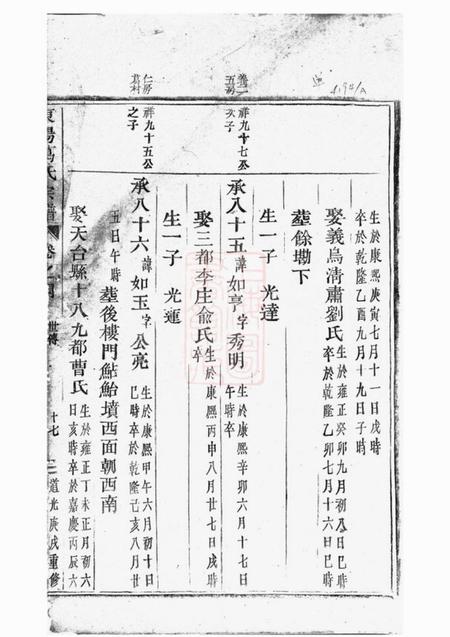 生於康熙庚寅七月十一日戌時
卒於乾隆乙酉九月十九日子時
娶義烏清肅劉氏 生於雍正癸卯九月初八日巳時
卒於乾隆乙卯七月十六日巳時
塟餘墈下
生一子 光達
祥九十七公
次子
承八十五 諱 如亭 字 秀明 生於康熙辛卯六月十七日
午時卒
娶三都李庄俞氏 生於康熙丙申八月廿七日戌時
卒
生一子 光運
仁房
葛村
祥九十五公
之子
承八十六 諱 如玉 字 公亮 生於康熙甲午六月初十日
巳時卒於乾隆己亥八月廿
五日午時 塟後樓門鮎鮐墳西面朝西南
娶天台縣十八九都曹氏 生於雍正丁未正月初六
日亥時卒於嘉慶丙辰六
東陽葛氏宗譜 卷之 世傳 十七 道光庚戌重修